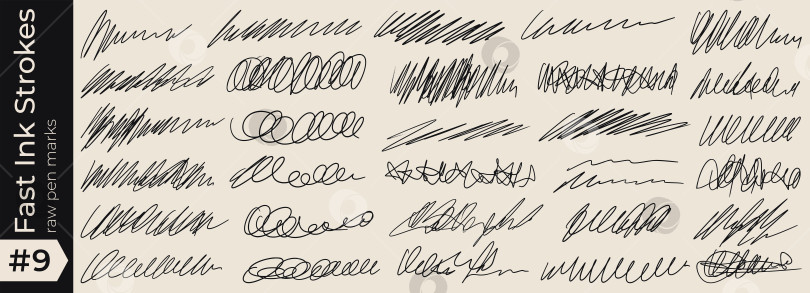 Fast Ink Strokes
raw pen marks
#9